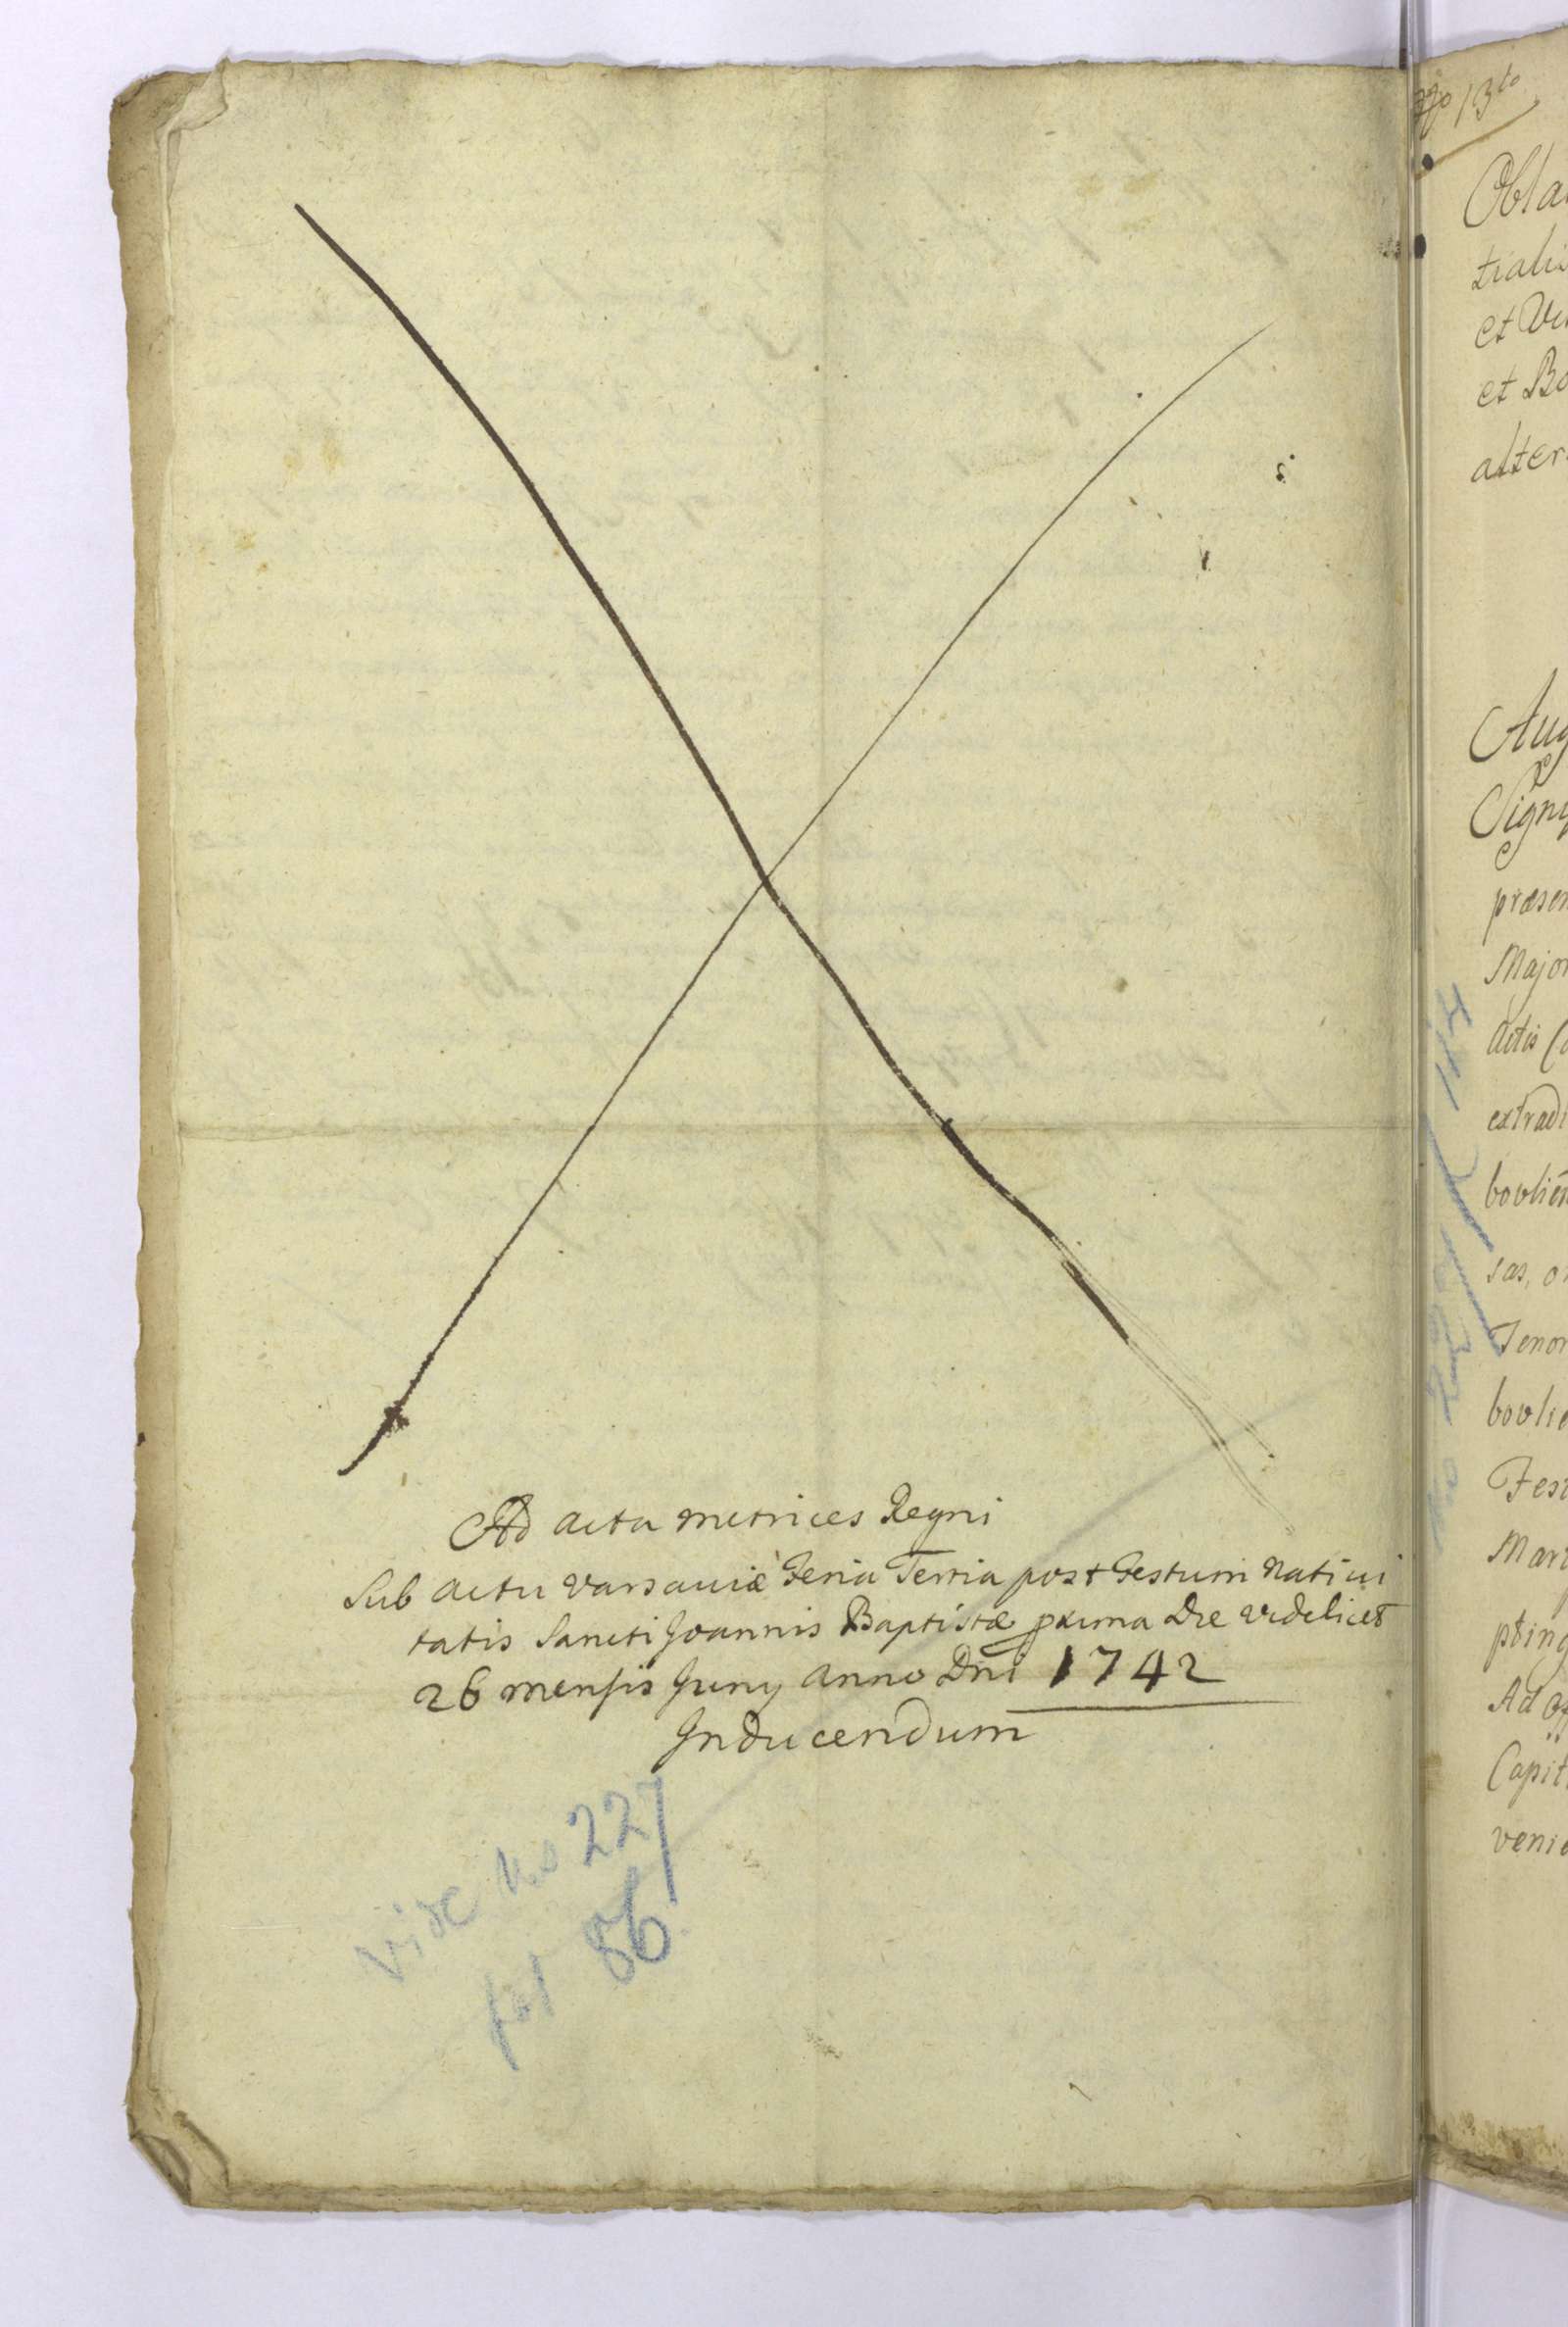 Ad acta metrices Regni
Sub actu Varsaviæ Feria Tertia post Festum Nativi
tatis Sancti Joannis Baptistæ pxima Die videlicet
26 mensis Juny Anno Dni 1742
Inducendum
vide No 227
fol 86
13to
Obla
tialis
et Vi
et Bo
alter
Aug
Signy
præsen
Major
Actis
extradi
bovlien
sas, o
Tenor
bovlie
Fest
Mari
pting
Ad Off
Capit
venie